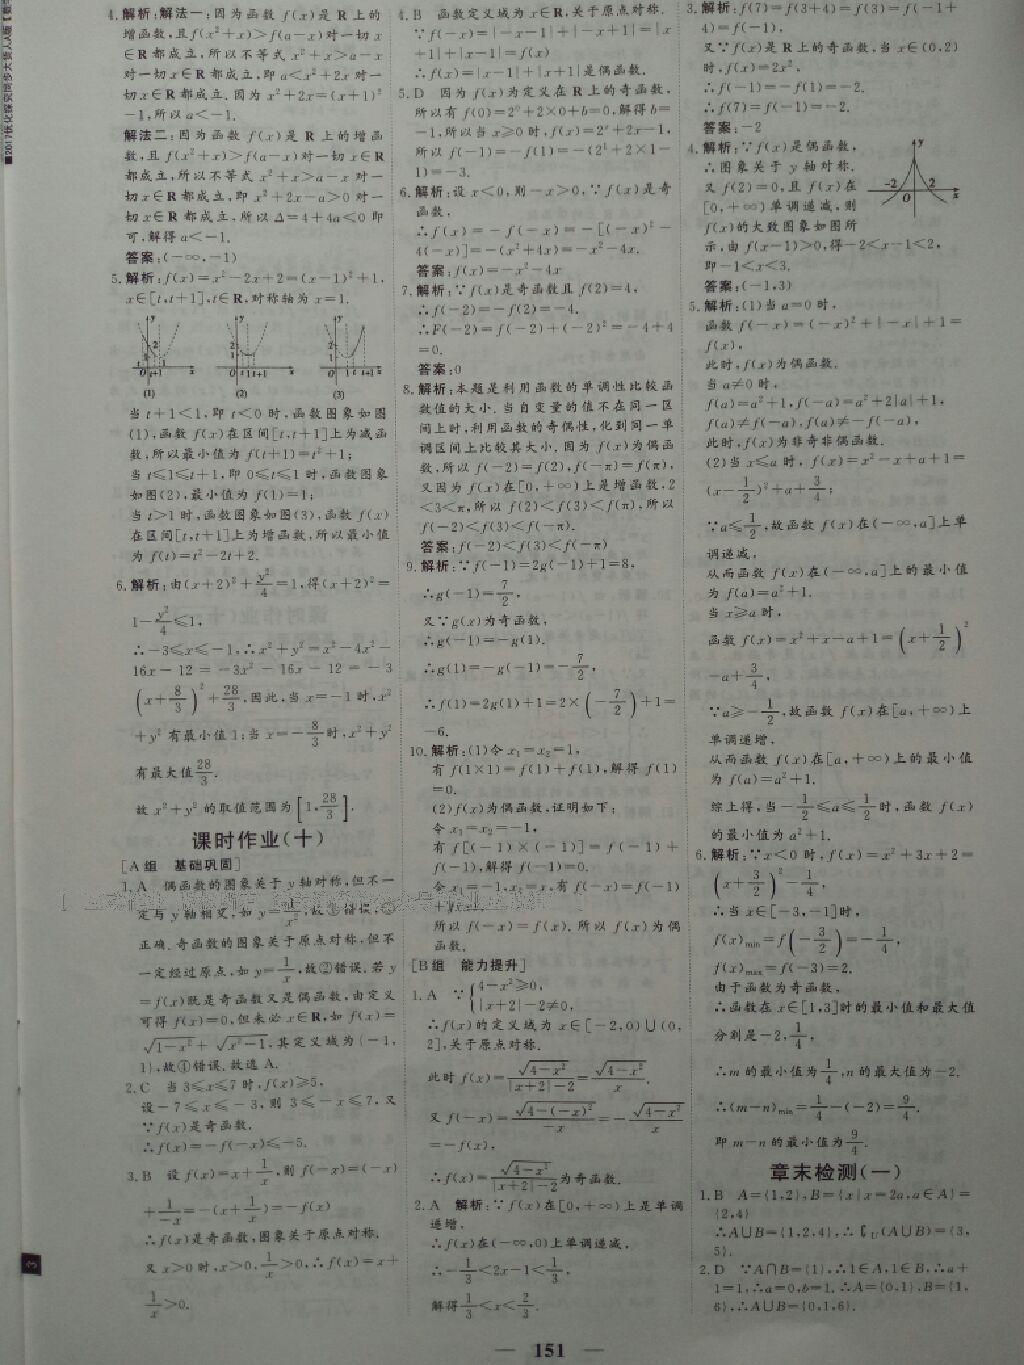 4.解析:解法一:因为函数 f(x)是 R 上的
增函数,且f(x²+x)>f(a-x)对一切x
∈R 都成立,所以不等式 x²+x>a-x
对一切x∈R 都成立,即 a<x²+2x 对一
切x∈R 都成立.因为 x²+2x=(x+1)²
-1,所以 a<-1.
解法二:因为函数 f(x)是 R 上的增函
数,且 f(x²+x)>f(a-x)对一切 x∈R
都成立,所以不等式 x²+x>a-x 对一
切x∈R 都成立,即 x²+2x-a>0 对一
切x∈R 都成立,所以 Δ=4+4a<0 即
可,解得 a<-1.
答案:(-∞,-1)
5.解析:f(x)=x²-2x+2=(x-1)²+1,
x∈[t,t+1],t∈R,对称轴为 x=1.
(1) (2) (3)
当 t+1<1,即 t<0 时,函数图象如图
(1),函数 f(x)在区间[t,t+1]上为减函
数,所以最小值为 f(t+1)=t²+1;
当 t≤1≤t+1,即 0≤t≤1 时,函数图象
如图(2),最小值为 f(1)=1;
当 t>1 时,函数图象如图(3),函数 f(x)
在区间[t,t+1]上为增函数,所以最小值
为 f(t)=t²-2t+2.
6.解析:由(x+2)²+y²/4=1,得(x+2)²=
1-y²/4≤1,
∴-3≤x≤-1,∴x²+y²=x²-4x²-
16x-12=-3x²-16x-12=-3
(x+8/3)²+28/3,因此,当 x=-1 时,x²
+y² 有最小值 1;当 x=-8/3时,x²+y²
有最大值28/3.
故 x²+y² 的取值范围为[1,28/3].
课时作业(十)
[A组 基础巩固]
1.A 偶函数的图象关于 y 轴对称,但不一
定与 y 轴相交,如 y=1/x²,故①错误,③
正确.奇函数的图象关于原点对称,但不
一定经过原点,如 y=1/x,故②错误.若 y
=f(x)既是奇函数又是偶函数,由定义
可得 f(x)=0,但未必 x∈R,如 f(x)=
√(1-x²)+√(x²-1),其定义域为{-1,
1},故④错误.故选 A.
2.C 当 3≤x≤7 时,f(x)≥5,
设-7≤x≤-3,则 3≤-x≤7,又
∵f(x)是奇函数,
∴f(x)=-f(-x)≤-5.
3.B 设 f(x)=x+1/x,则 f(-x)=(-x)
+1/-x=-(x+1/x)=-f(x)
∴f(x)是奇函数,图象关于原点对称.
又 x>0 时,x>0,1/x>0,∴f(x)=x+
1/x>0.
4.B 函数定义域为 x∈R,关于原点对称.
∵f(-x)=|-x-1|+|-x+1|=|x
+1|+|x-1|=f(x)
∴f(x)=|x-1|+|x+1|是偶函数.
5.D 因为 f(x)为定义在 R 上的奇函数,
所以有 f(0)=2⁰+2×0+b=0,解得 b=
-1,所以当 x≥0 时,f(x)=2ˣ+2x-1,
所以 f(-1)=-f(1)=-(2¹+2×1-
1)=-3.
6.解析:设 x<0,则-x>0,∵f(x)是奇
函数,
∴f(x)=-f(-x)=-[(-x)²-
4(-x)]=-(x²+4x)=-x²-4x.
答案:f(x)=-x²-4x
7.解析:∵f(x)是奇函数且 f(2)=4,
∴f(-2)=-f(2)=-4.
∴F(-2)=f(-2)+(-2)²=-4+4
=0.
答案:0
8.解析:本题是利用函数的单调性比较函
数值的大小.当自变量的值不在同一区
间上时,利用函数的奇偶性,化到同一单
调区间上比较其大小.因为 f(x)为偶函
数,所以 f(-2)=f(2),f(-π)=f(π),
又因为 f(x)在[0,+∞)上是增函数,2
<3<π,所以 f(2)<f(3)<f(π),所以
f(-2)<f(3)<f(-π).
答案:f(-2)<f(3)<f(-π)
9.解析:∵f(-1)=2g(-1)+1=8,
∴g(-1)=7/2,
又∵g(x)为奇函数,
∴g(-1)=-g(1).
∴g(1)=-g(-1)=-7/2,
∴f(1)=2g(1)+1=2×(-7/2)+1=
-6.
10.解析:(1)令 x₁=x₂=1,
有 f(1×1)=f(1)+f(1),解得 f(1)
=0.
(2)f(x)为偶函数,证明如下:
令 x₁=x₂=-1,
有 f[(-1)×(-1)]=f(-1)+
f(-1),解得 f(-1)=0.
令 x₁=-1,x₂=x,有 f(-x)=f(-1)
所以 f(-x)=f(x).所以 f(x)为偶
函数.
[B组 能力提升]
1.A ∵{4-x²≥0,
|x+2|-2≠0,
∴f(x)的定义域为 x∈[-2,0)∪(0,
2],关于原点对称.
此时 f(x)=√(4-x²)/(|x+2|-2)=√(4-x²)/x.
又 f(-x)=√(4-(-x)²)/-x=-√(4-x²)/x
=-f(x),
∴f(x)=√(4-x²)/(|x+2|-2)为奇函数.
2.A 解析:∵f(x)在[0,+∞)上是单调
递增.
∴f(x)在(-∞,0)上单调递减,
∴-1/3<2x-1<1/3,
解得1/3<x<2/3.
3.解析:f(7)=f(3+4)=f(3)=f(-1+
4)=f(-1),
又∵f(x)是 R 上的奇函数,当 x∈(0,2)
时,f(x)=2x²,
∴f(-1)=-f(1)=-2.
∴f(7)=f(-1)=-2.
答案:-2
4.解析:∵f(x)是偶函数,
∴图象关于 y 轴对称.
又 f(2)=0,且 f(x)在
[0,+∞)单调递减,则
f(x)的大致图象如图所
示,由 f(x-1)>0,得-2<x-1<2,
即-1<x<3.
答案:(-1,3)
5.解析:(1)当 a=0 时,
函数 f(-x)=(-x)²+|-x|+1=
f(x),
此时,f(x)为偶函数.
当 a≠0 时,
f(a)=a²+1,f(-a)=a²+2|a|+1,
f(a)≠f(-a),f(a)≠-f(-a),
此时,f(x)为非奇非偶函数.
(2)当 x≤a 时,f(x)=x²-x+a+1=
(x-1/2)²+a+3/4;
∵a≤1/2,故函数 f(x)在(-∞,a]上单
调递减,
从而函数 f(x)在(-∞,a]上的最小值
为 f(a)=a²+1.
当 x≥a 时,
函数 f(x)=x²+x-a+1=(x+1/2)²
-a+3/4,
∵a≥-1/2,故函数 f(x)在[a,+∞)上
单调递增,
从而函数 f(x)在[a,+∞)上的最小值
为 f(a)=a²+1.
综上得,当-1/2≤a≤1/2时,函数 f(x)
的最小值为 a²+1.
6.解析:∵x<0 时,f(x)=x²+3x+2=
(x+3/2)²-1/4,
∴当 x∈[-3,-1]时,
f(x)min=f(-3/2)=-1/4,
f(x)max=f(-3)=2.
由于函数为奇函数,
∴函数在 x∈[1,3]时的最小值和最大值
分别是-2,1/4,
∴m 的最小值为1/4,n 的最大值为-2.
∴(m-n)min=1/4-(-2)=9/4,
即 m-n 的最小值为9/4.
章末检测(一)
1.B A={1,2},B={x|x=2a,a∈A}=
{2,4}
∴A∪B={1,2,4},∴∁U(A∪B)={3,
5}.
2.D ∵A∩B={1},∴1∈A,1∈B,∴a+
1=1,∴a=0,b=1.∴A={0,1},B={1,
6},∴A∪B={0,1,6}.
3
— 151 —